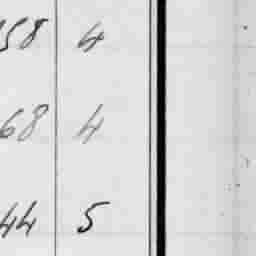 58 4
68 4
44 5